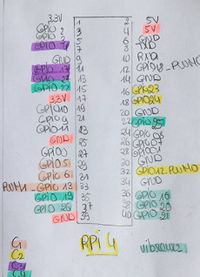 3.3V 1 2 5V
GPIO 2 3 4 5V
GPIO 3 5 6 GND
GPIO 4 7 8
GND 9 10 RXD
11 12 GPIO18_PWM0
13 14 GND
15 16 GPIO23
3.3V 17 18 GPIO24
GPIO10 19 20 GND
GPIO9 21 22 GPIO25
GPIO11 23 24 GPIO8
GND 25 26 GPIO7
GPIO0 27 28
GPIO5 29 30 GND
GPIO6 31 32 GPIO12_PWM0
PWM1_GPIO13 33 34 GND
GPIO19 35 36 GPIO16
GPIO26 37 38 GPIO20
GND 39 40 GPIO21
C1
C2
RPi 4